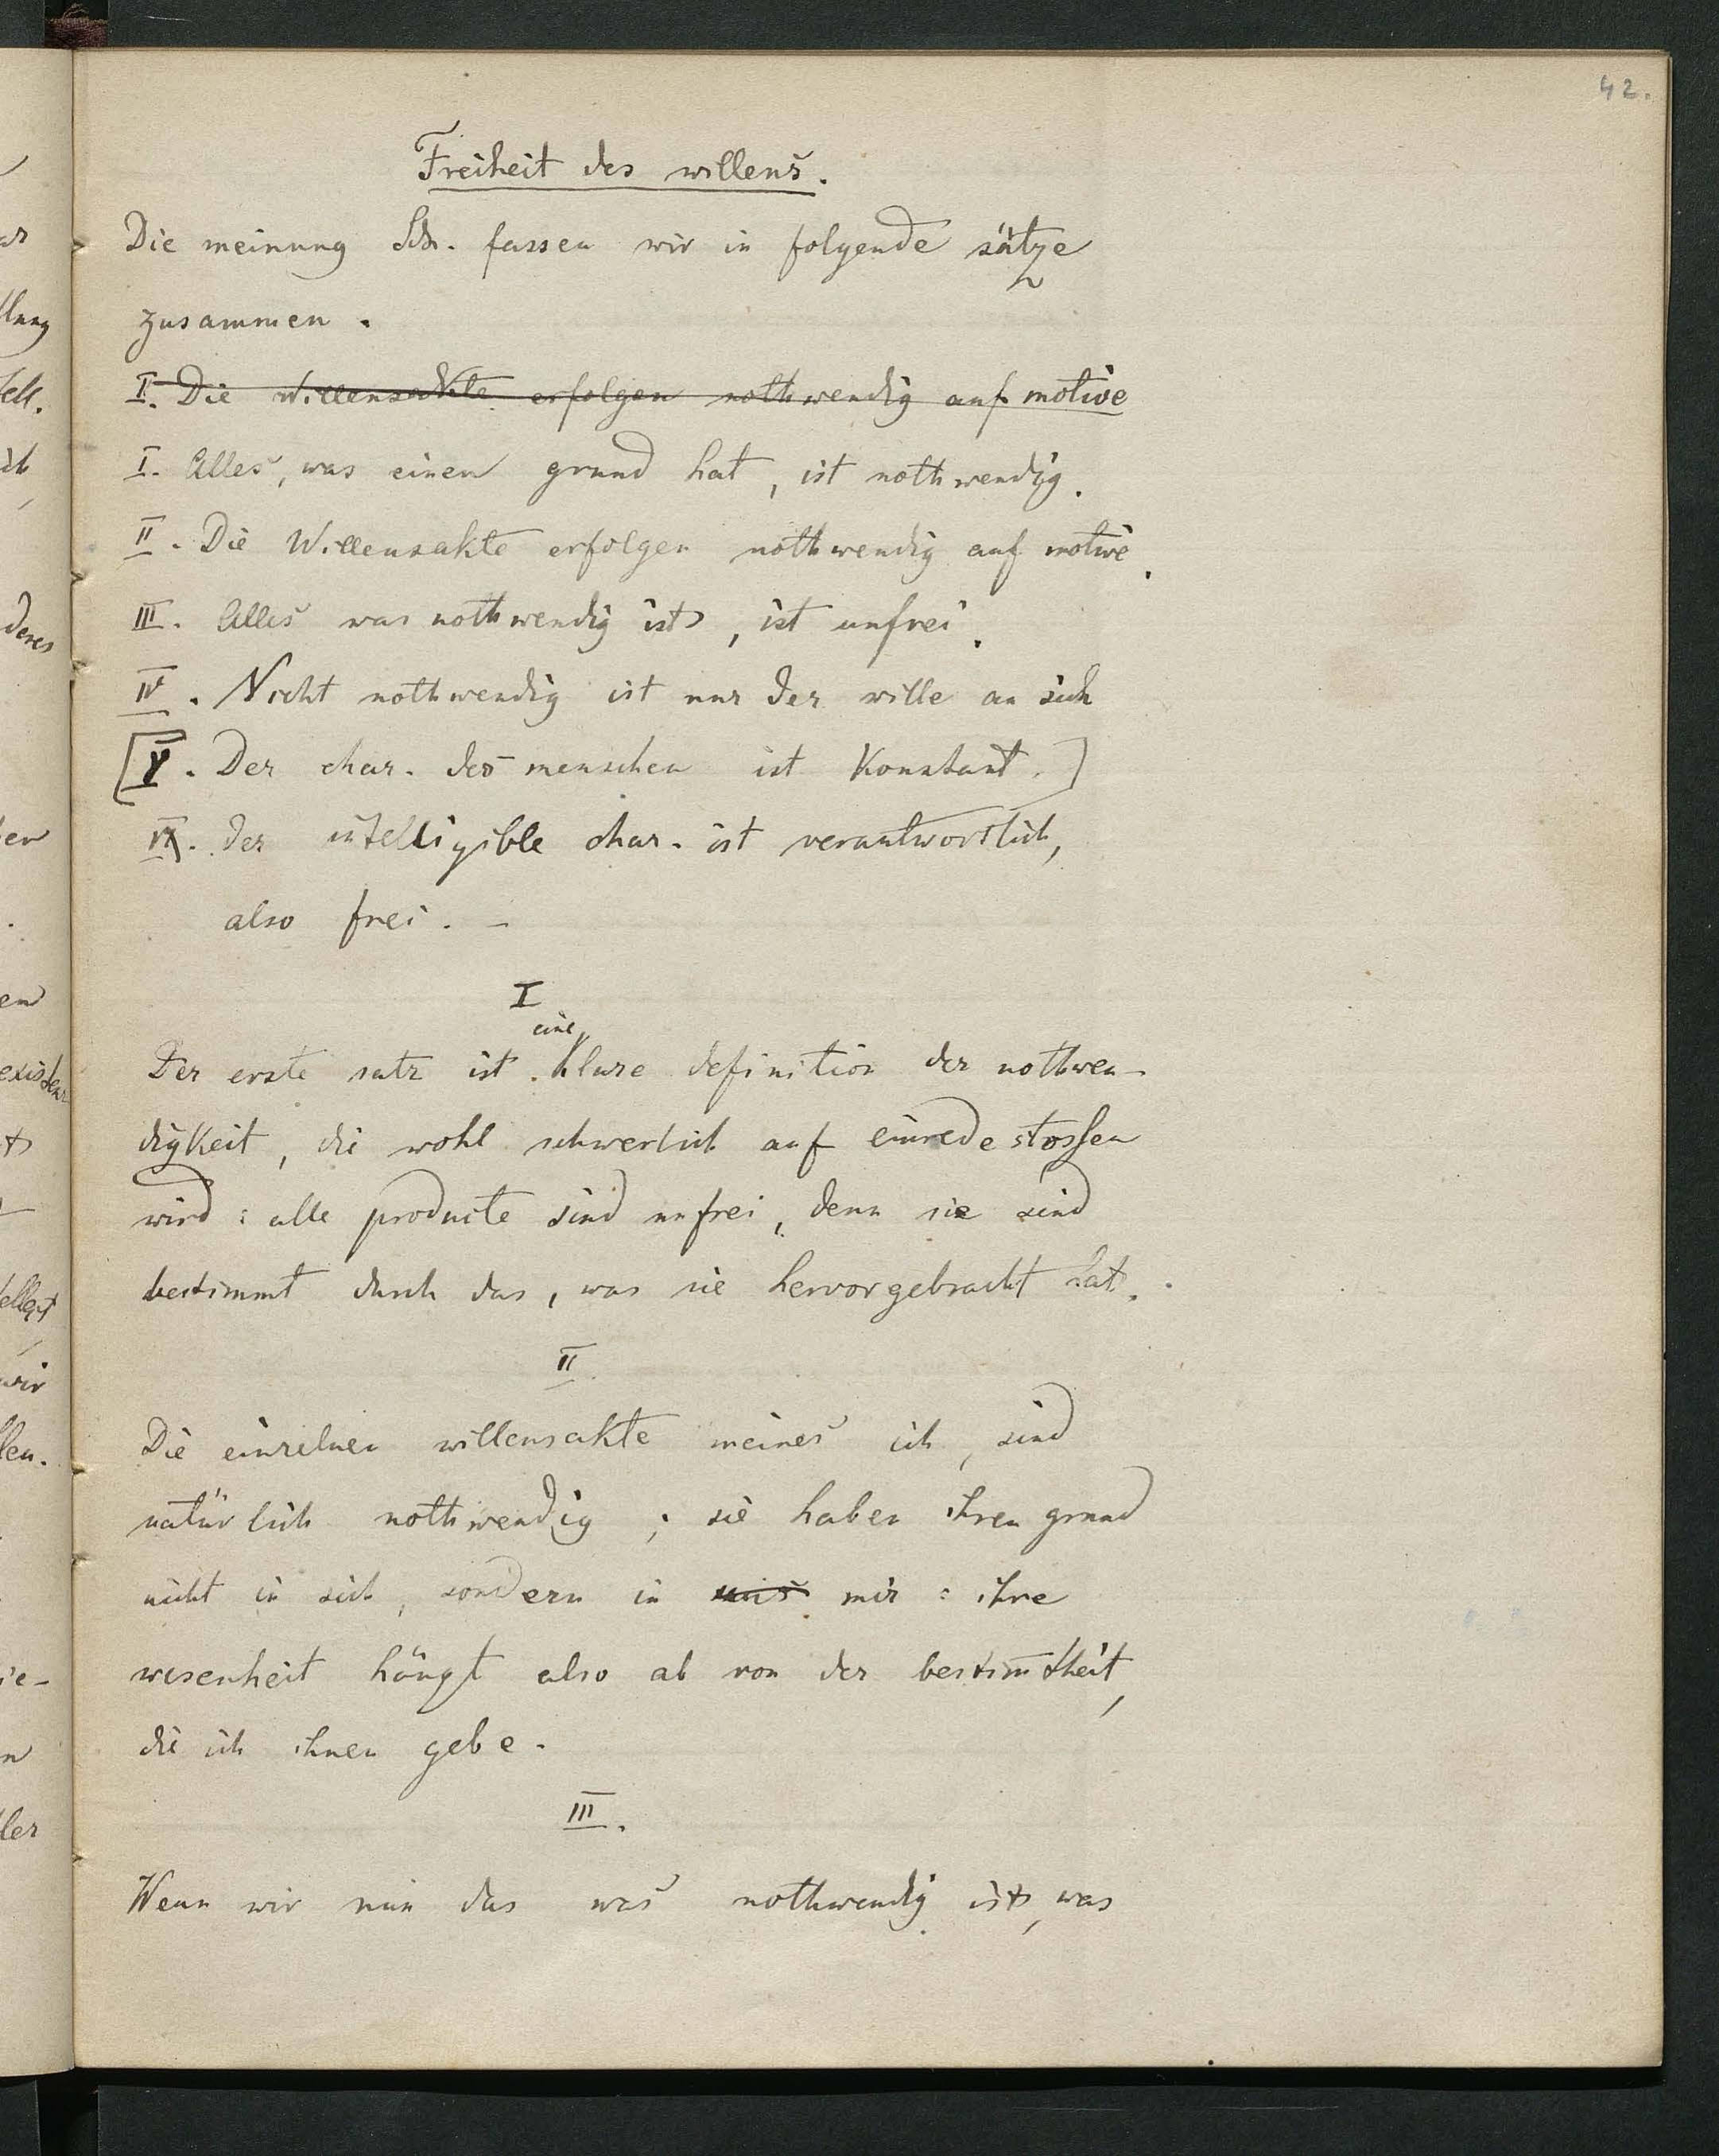 42.
Freiheit des willens.
Die meinung Sch. fassen wir in folgende sätze
zusammen.
I. Die Willensakte erfolgen nothwendig auf motive
I. Alles, was einen grund hat, ist nothwendig.
II. Die Willensakte erfolgen nothwendig auf motive.
III. Alles was nothwendig ist, ist unfrei.
IV. Nicht nothwendig ist nur der wille an sich
[V. Der char. des menschen ist Konstant.]
VI. der intelligible char. ist verantwortlich,
also frei. -
I
eine
Der erste satz ist klare definition der nothwen-
digkeit, die wohl schwerlich auf einrede stossen
wird: alle producte sind unfrei, denn sie sind
bestimmt durch das, was sie hervorgebracht hat.
II.
Die einzelnen willensakte meines ich, sind
natürlich nothwendig; sie haben ihren grund
nicht in sich, sondern in mir: ihre
wesenheit hängt also ab von der bestim̅theit,
die ich ihnen gebe.
III.
Wenn wir nun das was nothwendig ist, was